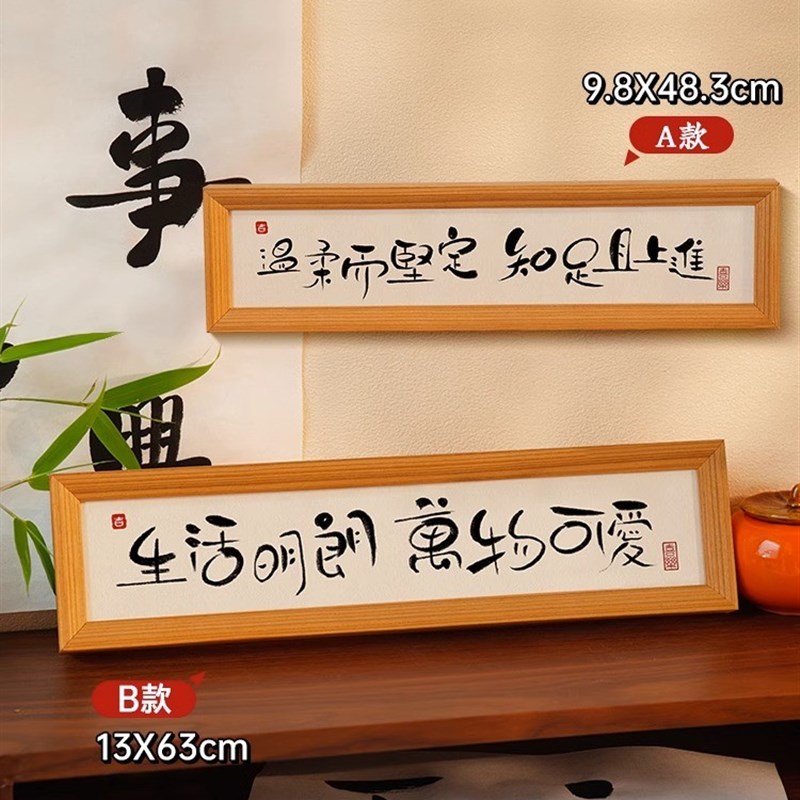 9.8X48.3cm
A款
事
溫柔而堅定 知足且上進
吉
興
生活明朗 萬物可愛
吉
B款
13X63cm